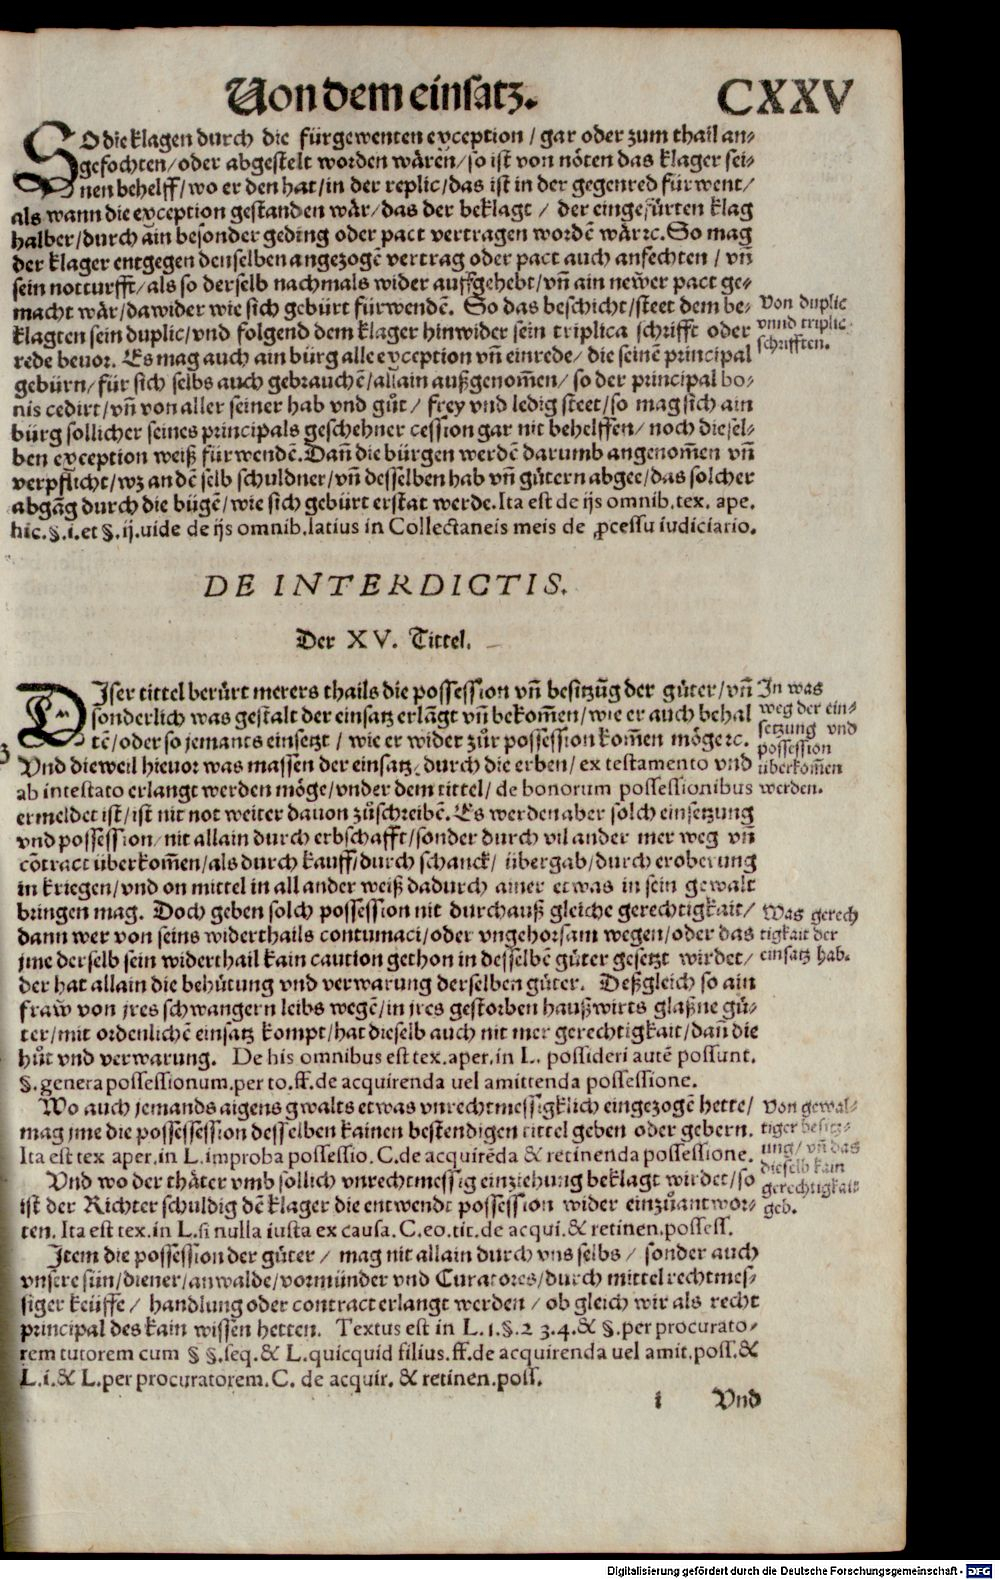 Von dem einsatz. CXXV
SO die klagen durch die fürgewenten exception / gar oder zum thail an-
gefochten / oder abgestelt worden wären / so ist von nöten das klager sei-
nen behelff / wo er den hat / in der replic / das ist in der gegenred fürwent /
als wann die exception gestanden wär / das der beklagt / der eingefürten klag
halber / durch ain besonder geding oder pact vertragen wordē wär ꝛc. So mag
der klager entgegen denselben angezogē vertrag oder pact auch anfechten / vñ
sein notturfft / als so derselb nachmals wider auffgehebt / vñ ain newer pact ge-
macht wär / dawider wie sich gebürt fürwendē. So das beschicht / steet dem be-
klagten sein duplic / vnd folgend dem klager hinwider sein triplica schrifft oder
rede beuor. Es mag auch ain bürg alle exception vñ einrede / die seinē principal
gebürn / für sich selbs auch gebrauchē / allain außgenom̃en / so der principal bo-
nis cedirt / vñ von aller seiner hab vnd gůt / frey vnd ledig steet / so mag sich ain
bürg sollicher seines principals geschehner cession gar nit behelffen / noch diesel-
ben exception weiß fürwendē. Dañ die bürgen werdē darumb angenom̃en vñ
verpflicht / wz an dē selb schuldner / vñ desselben hab vñ gütern abgee / das solcher
abgāg durch die bügē / wie sich gebürt erstat werde. Ita est de ijs omnib. tex. ape.
hic. §. i. et §. ij. uide de ijs omnib. latius in Collectaneis meis de ꝓcessu iudiciario.
Von duplic
vnnd triplic
schrifften.
DE INTERDICTIS.
Der XV. Tittel.
DIser tittel berürt merers thails die possession vñ besitzūg der güter / vñ
sonderlich was gestalt der einsatz erlāgt vñ bekom̃en / wie er auch behal
tē / oder so jemants einsetzt / wie er wider zůr possession kom̃en möge ꝛc.
Vnd dieweil hieuor was massen der einsatz / durch die erben / ex testamento vnd
ab intestato erlangt werden möge / vnder dem tittel / de bonorum possessionibus
ermeldet ist / ist nit not weiter dauon zůschreibē. Es werden aber solch einsetzung
vnd possession / nit allain durch erbschafft / sonder durch vil ander mer weg vñ
cōtract überkom̃en / als durch kauff / durch schanck / übergab / durch eroberung
in kriegen / vnd on mittel in all ander weiß dadurch ainer etwas in sein gewalt
bringen mag. Doch geben solch possession nit durchauß gleiche gerechtigkait /
dann wer von seins widerthails contumaci / oder vngehorsam wegen / oder das
jme derselb sein widerthail kain caution gethon in desselbē güter gesetzt wirdet /
der hat allain die behütung vnd verwarung derselben güter. Deßgleich so ain
fraw von jres schwangern leibs wegē / in jres gestorben haußwirts glaßne gü-
ter / mit ordenlichē einsatz kompt / hat dieselb auch nit mer gerechtigkait / dañ die
hůt vnd verwarung. De his omnibus est tex. aper. in L. possideri autē possunt.
§. genera possessionum. per to. ff. de acquirenda uel amittenda possessione.
In was
weg der ein-
setzung vnd
possession
überkom̃en
werden.
Was gerech
tigkait der
einsatz hab.
Wo auch jemands aigens gwalts etwas vnrechtmessigklich eingezogē hette /
mag jme die possessession desselben kainen bestendigen tittel geben oder gebern.
Ita est tex aper. in L. improba possessio. C. de acquirēda & retinenda possessione.
Vnd wo der thäter vmb sollich vnrechtmessig einziehung beklagt wirdet / so
ist der Richter schuldig dē klager die entwendt possession wider einzůantwor-
ten. Ita est tex. in L. si nulla iusta ex causa. C. eo. tit. de acqui. & retinen. possess.
Von gewal-
tiger besitz-
ung / vñ das
dieselb kain
gerechtigkait
geb.
Item die possession der güter / mag nit allain durch vns selbs / sonder auch
vnsere sün / diener / anwalde / vormünder vnd Curatores / durch mittel rechtmes-
siger keüffe / handlung oder contract erlangt werden / ob gleich wir als recht
principal des kain wissen hetten. Textus est in L. 1. §. 2 3. 4. & §. per procurato-
rem tutorem cum § §. seq. & L. quicquid filius. ff. de acquirenda uel amit. poss. &
L. i. & L. per procuratorem. C. de acquir. & retinen. poss.
i Vnd
Digitalisierung gefördert durch die Deutsche Forschungsgemeinschaft - DFG